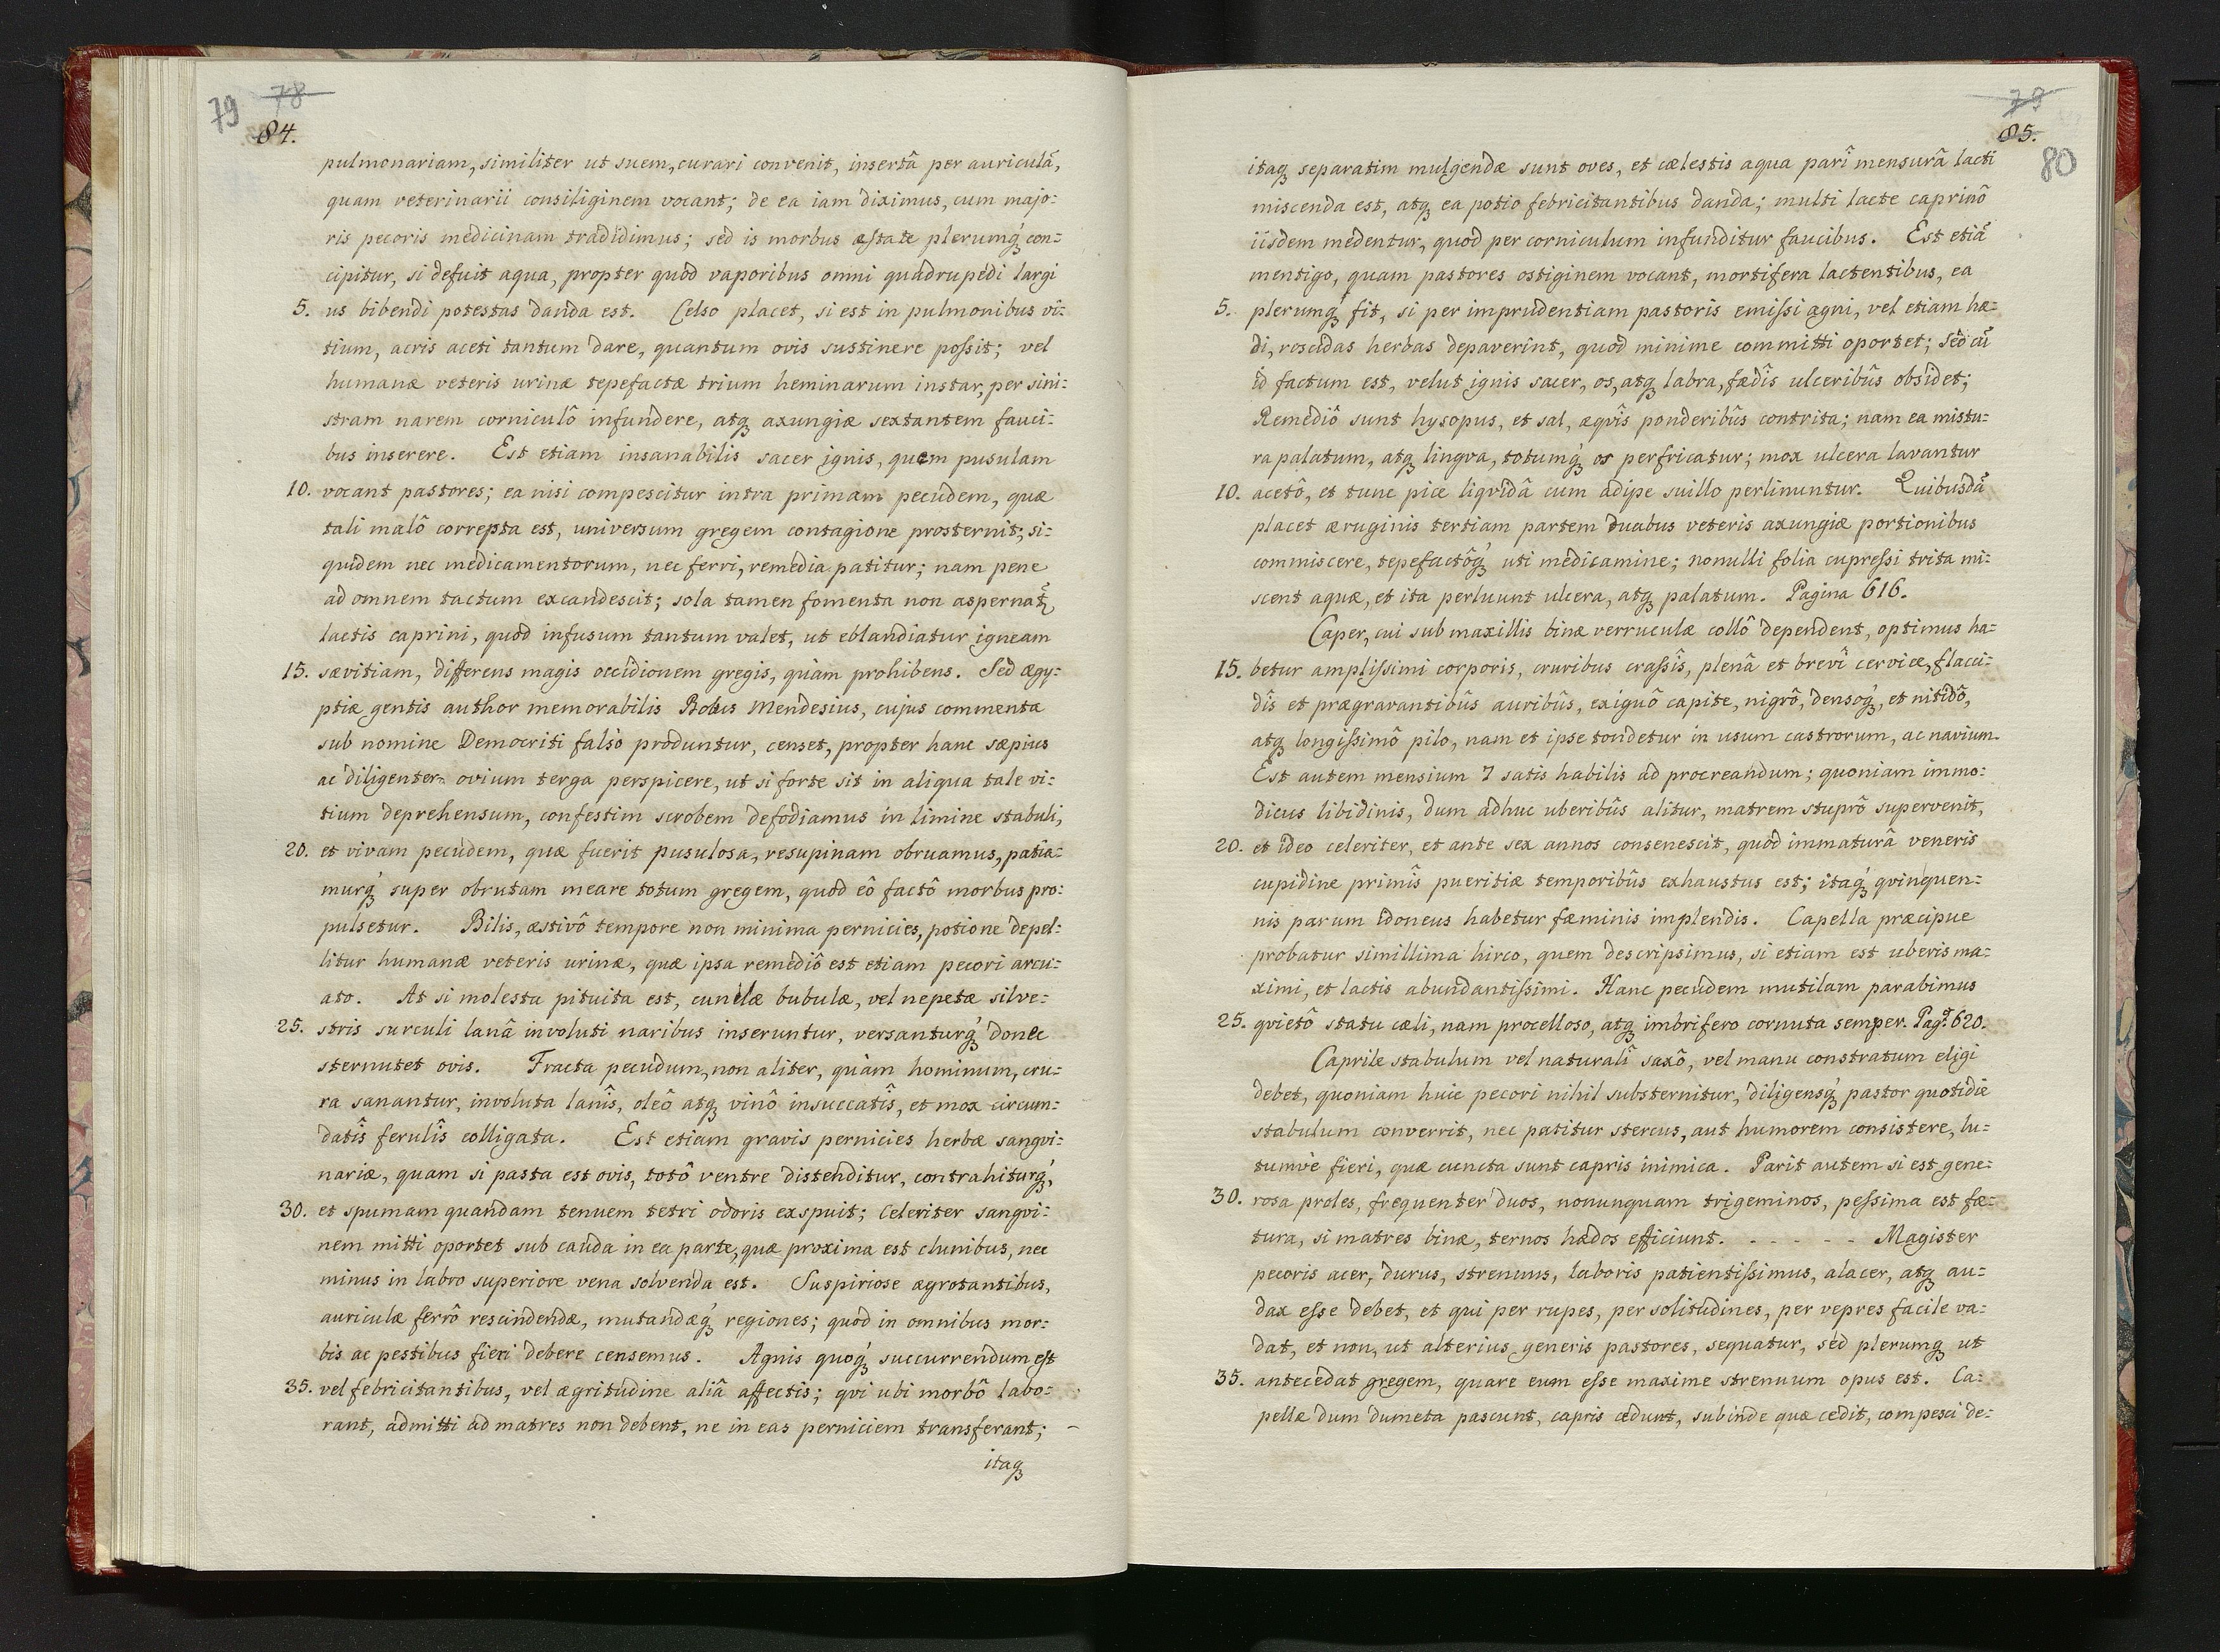 79 78
84.
pulmonariam, similiter ut suem, curari convenit, insertâ per auriculā,
quam veterinarii consiliginem vocant; de ea iam diximus, cum majo=
ris pecoris medicinam tradidimus; sed is morbus æstate plerumq́ con=
cipitur, si defuit aqua, propter quod vaporibus omni quadrupedi largi
5. us bibendi potestas danda est. Celso placet, si est in pulmonibus vi=
tium, acris aceti tantum dare, quantum ovis sustinere possit; vel
humanæ veteris urinæ tepefactæ trium heminarum instar, per sini=
stram narem corniculô infundere, atq axungiæ sextantem fauci=
bus inserere. Est etiam insanabilis sacer ignis, quem pusulam
10. vocant pastores; ea nisi compescitur intra primam pecudem, quæ
tali malô correpta est, universum gregem contagione prosternit, si=
quidem nec medicamentorum, nec ferri, remedia patitur; nam pene
ad omnem tactum excandescit; sola tamen fomenta non aspernat̃,
lactis caprini, quod infusum tantum valet, ut eblandiatur igneam
15. sævitiam, differens magis occidionem gregis, quàm prohibens. Sed ægy=
ptiæ gentis author memorabilis Bolus Mendesius, cujus commenta
sub nomine Democriti falsò produntur, censet, propter hanc sæpius
ac diligenter ovium terga perspicere, ut si forte sit in aliqua tale vi=
tium deprehensum, confestim scrobem defodiamus in limine stabuli,
20. et vivam pecudem, quæ fuerit pusulosa, resupinam obruamus, patia=
murq́ super obrutam meare totum gregem, quòd eô factô morbus pro=
pulsetur. Bilis, æstivô tempore non minima pernicies, potione depel=
litur humanæ veteris urinæ, quæ ipsa remediô est etiam pecori arcu=
ato. At si molesta pituita est, cunilæ bubulæ, vel nepetæ silve=
25. stris surculi lanâ involuti naribus inseruntur, versanturq́ donec
sternutet ovis. Fracta pecudum, non aliter, quàm hominum, cru=
ra sanantur, involuta lanîs, oleô atq vinô insuccatîs, et mox circum=
datîs ferulîs colligata. Est etiam gravis pernicies herbæ sangvi=
nariæ, quam si pasta est ovis, totô ventre distenditur, contrahiturq́,
30. et spumam quandam tenuem tetri odoris exspuit; Celeriter sangvi=
nem mitti oportet sub cauda in ea parte, quæ proxima est clunibus, nec
minus in labro superiore vena solvenda est. Suspiriose ægrotantibus,
auriculæ ferrô rescindendæ, mutandæq́ regiones; quod in omnibus mor=
bis ac pestibus fieri debere censemus. Agnis quoq́ succurrendum est
35. vel febricitantibus, vel ægritudine aliâ affectis; qvi ubi morbô labo=
rant, admitti ad matres non debent, ne in eas perniciem transferant;
itaq
79
85.
80
itaq separatim mulgendæ sunt oves, et cælestis aqua parî mensurâ lacti
miscenda est, atq ea potio febricitantibus danda; multi lacte caprinô
iisdem medentur, quod per corniculum infunditur faucibus. Est etiā
mentigo, quam pastores ostiginem vocant, mortifera lactentibus, ea
5. plerumq́ fit, si per imprudentiam pastoris emissi agni, vel etiam hæ=
di, roscidas herbas depaverint, quod minime committi oportet; sed cū
id factum est, velut ignis sacer, os, atq labra, fædîs ulceribûs obsidet;
Remediô sunt hysopus, et sal, æqvîs ponderibûs contrita; nam ea mistu=
ra palatum, atq lingva, totumq́ os perfricatur; mox ulcera lavantur
10. acetô, et tunc pice liqvidâ cum adipe suillo perlinuntur. Quibusdā
placet æruginis tertiam partem duabus veteris axungiæ portionibus
commiscere, tepefactôq́ uti medicamine; nonulli folia cupressi trita mi=
scent aquæ, et ita perluunt ulcera, atq palatum. Pagina 616.
Caper, cui sub maxillis binæ verruculæ collô dependent, optimus ha=
15. betur amplissimi corporis, cruribus crassîs, plenâ et brevî cervice, flacci=
dîs et prægravantibûs auribûs, exiguô capite, nigrô, densoq́, et nitidô,
atq longissimô pilo, nam et ipse tondetur in usum castrorum, ac navium.
Est autem mensium 7 satis habilis ad procreandum; quoniam immo=
dicus libidinis, dum adhuc uberibûs alitur, matrem stuprô supervenit,
20. et ideo celeriter, et ante sex annos consenescit, quòd immaturâ veneris
cupidine primîs pueritiæ temporibûs exhaustus est; itaq́ qvinquen=
nis parum idoneus habetur fæminis implendis. Capella præcipue
probatur simillima hirco, quem descripsimus, si etiam est uberis ma=
ximi, et lactis abundantissimi. Hanc pecudem mutilam parabimus
25. qvietô statu cæli, nam procelloso, atq imbrifero cornuta semper. Pag. 620.
Caprile stabulum vel naturalî saxô, vel manu constratum eligi
debet, quoniam huic pecori nihil substernitur, diligensq́ pastor quotidie
stabulum converrit, nec patitur stercus, aut humorem consistere, lu=
tumvè fieri, quæ cuncta sunt capris inimica. Parit autem si est gene=
30. rosa proles, frequenter duos, nonunquam trigeminos, pessima est fæ=
tura, si matres binæ, ternos hædos efficiunt. - - - - - Magister
pecoris acer, durus, strenuus, laboris patientissimus, alacer, atq au=
dax esse debet, et qui per rupes, per solitudines, per vepres facile va=
dat, et non, ut alterius generis pastores, sequatur, sed plerumq ut
35. antecedat gregem, quare eum esse maxime strenuum opus est. Ca=
pellæ dum dumeta pascunt, capris cedunt, subinde quæ cedit, compesci de=